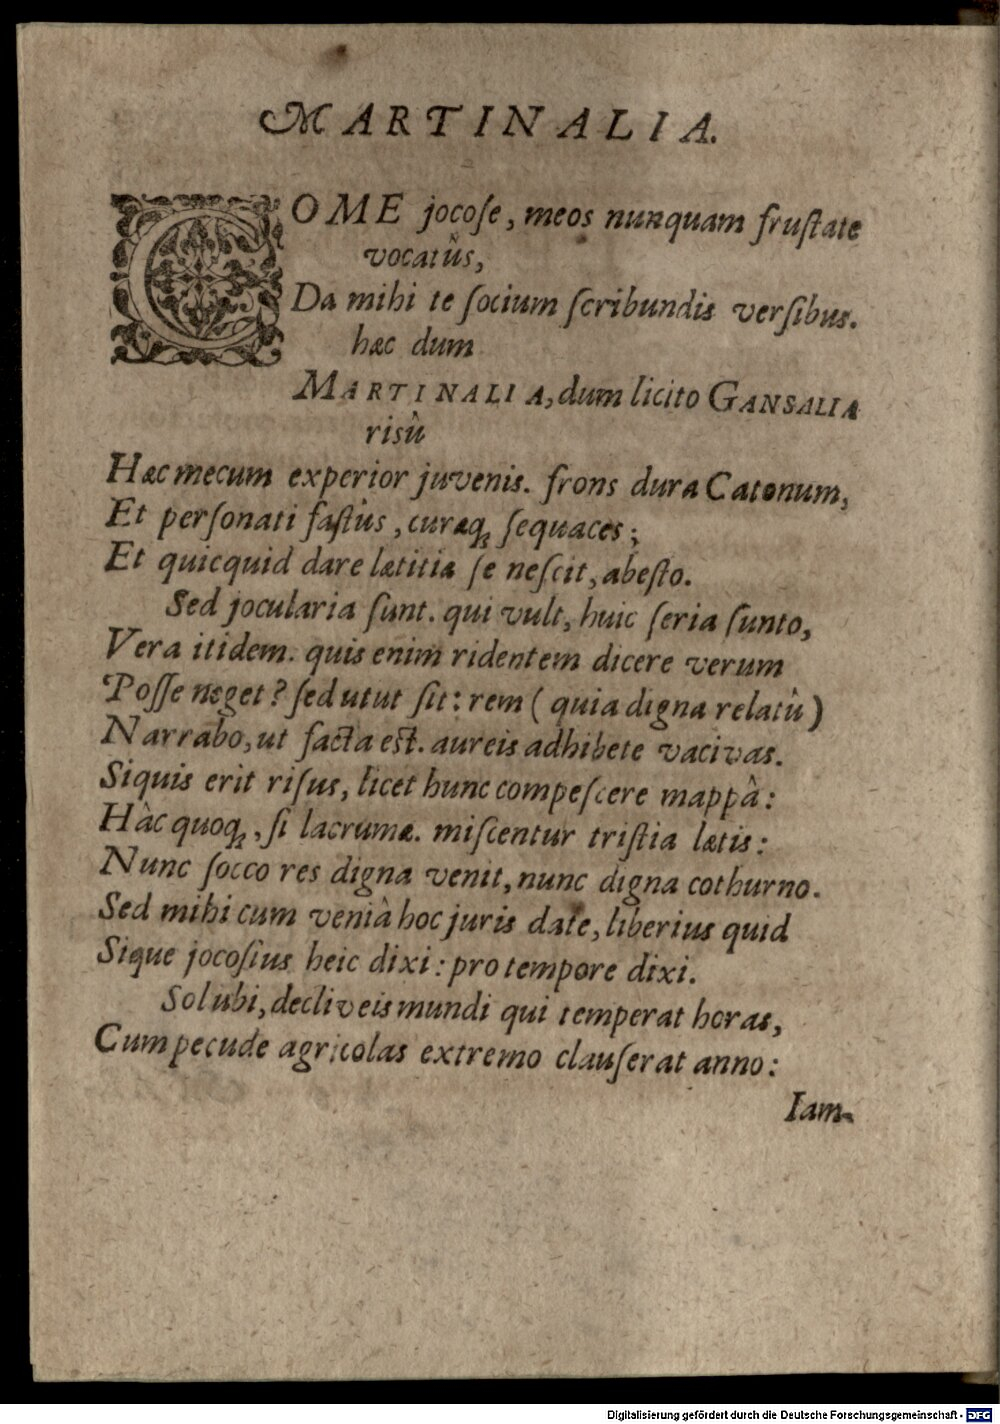 MARTINALIA.
COME jocoſe, meos nunquam fruſtate
vocatûs,
Da mihi te ſocium ſcribundis verſibus.
hæc dum
MARTINALIA, dum licito GANSALIA
risû
Hæc mecum experior juvenis. frons dura Catonum,
Et perſonati faſtûs, curæq; ſequaces;
Et quicquid dare lætitiæ ſe neſcit, abeſto.
Sed jocularia ſunt. qui vult, huic ſeria ſunto,
Vera itidem. quis enim ridentem dicere verum
Poſſe neget? ſed utut ſit: rem ( quia digna relatû )
Narrabo, ut facta eſt. aureis adhibete vacivas.
Siquis erit riſus, licet hunc compeſcere mappâ:
Hàc quoq;, ſi lacrumæ. miſcentur triſtia lætis:
Nunc ſocco res digna venit, nunc digna cothurno.
Sed mihi cum veniâ hoc juris date, liberius quid
Sique jocoſius heic dixi: pro tempore dixi.
Sol ubi, decliveis mundi qui temperat horas,
Cum pecude agricolas extremo clauſerat anno:
Iam-
Digitalisierung gefördert durch die Deutsche Forschungsgemeinschaft - DFG